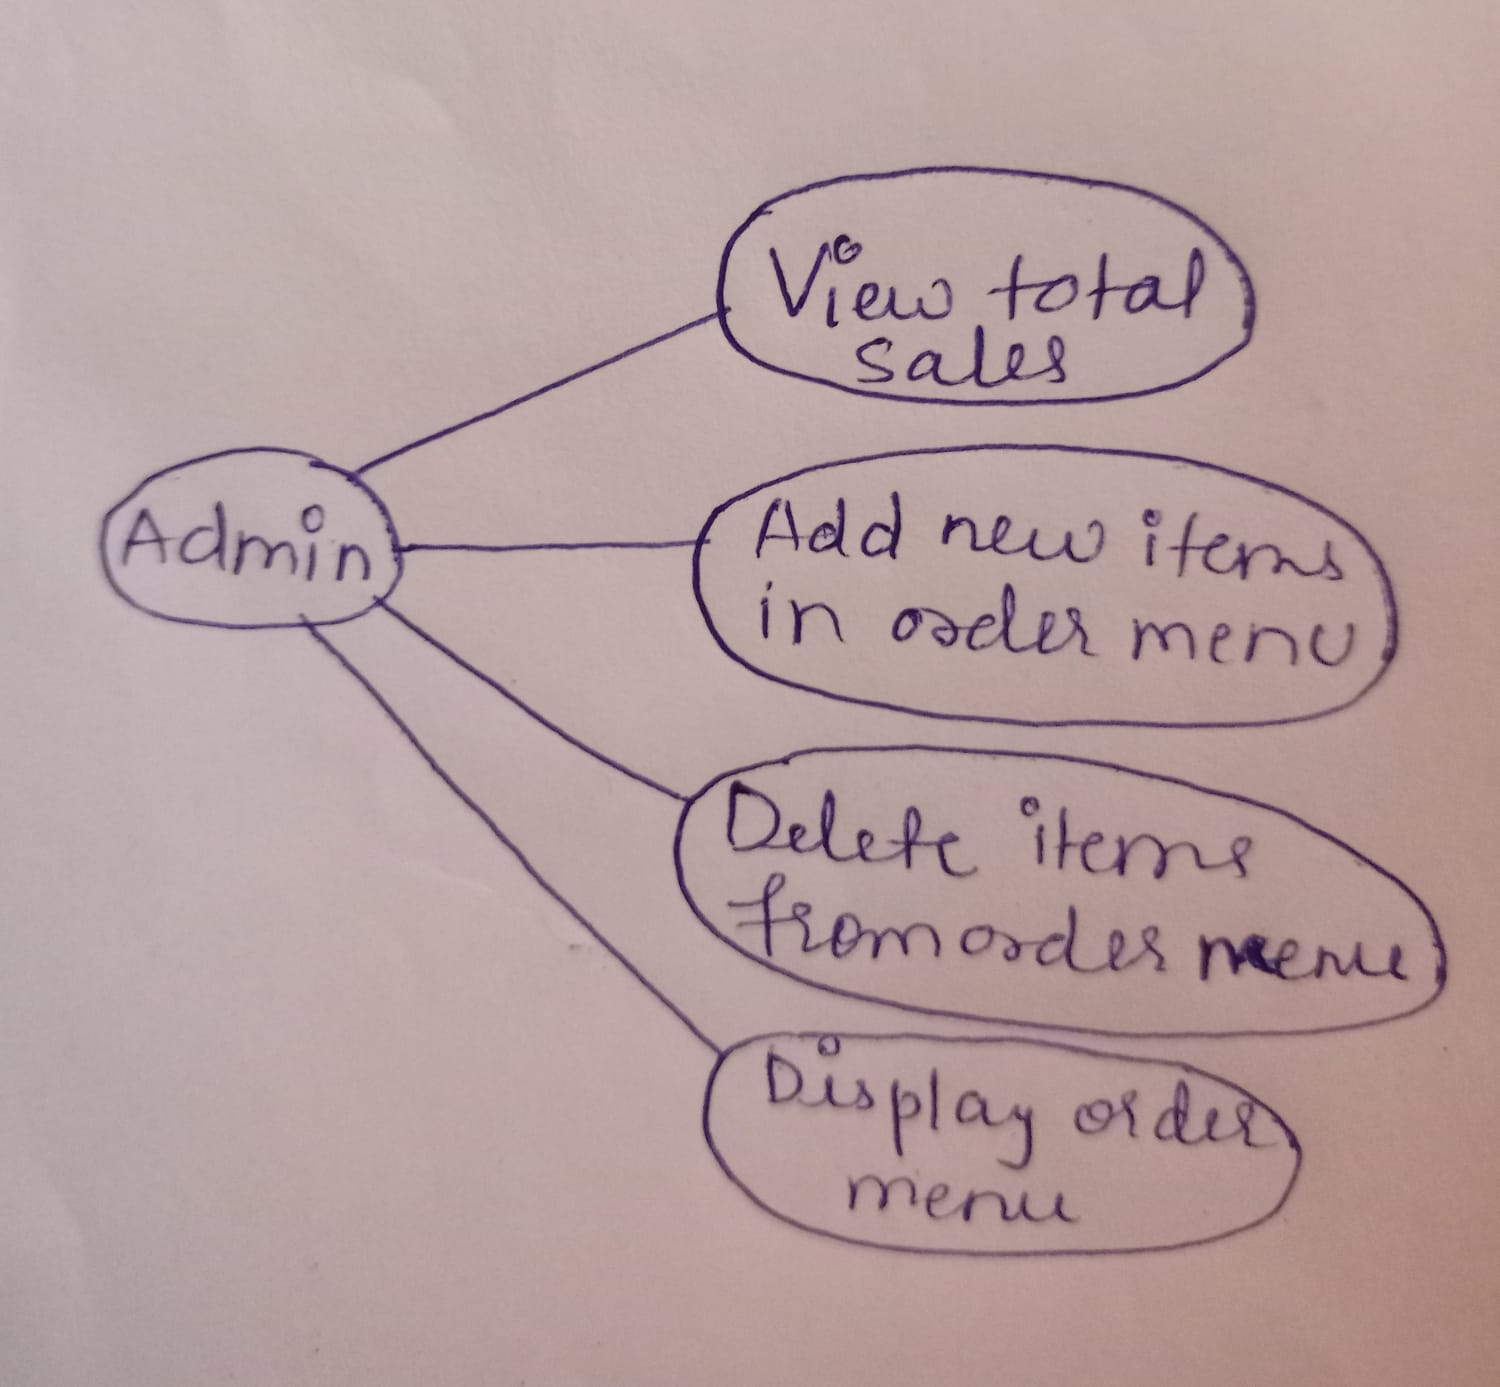 View total
sales
Admin
Add new items
in order menu
Delete items
from order menu
Display order
menu